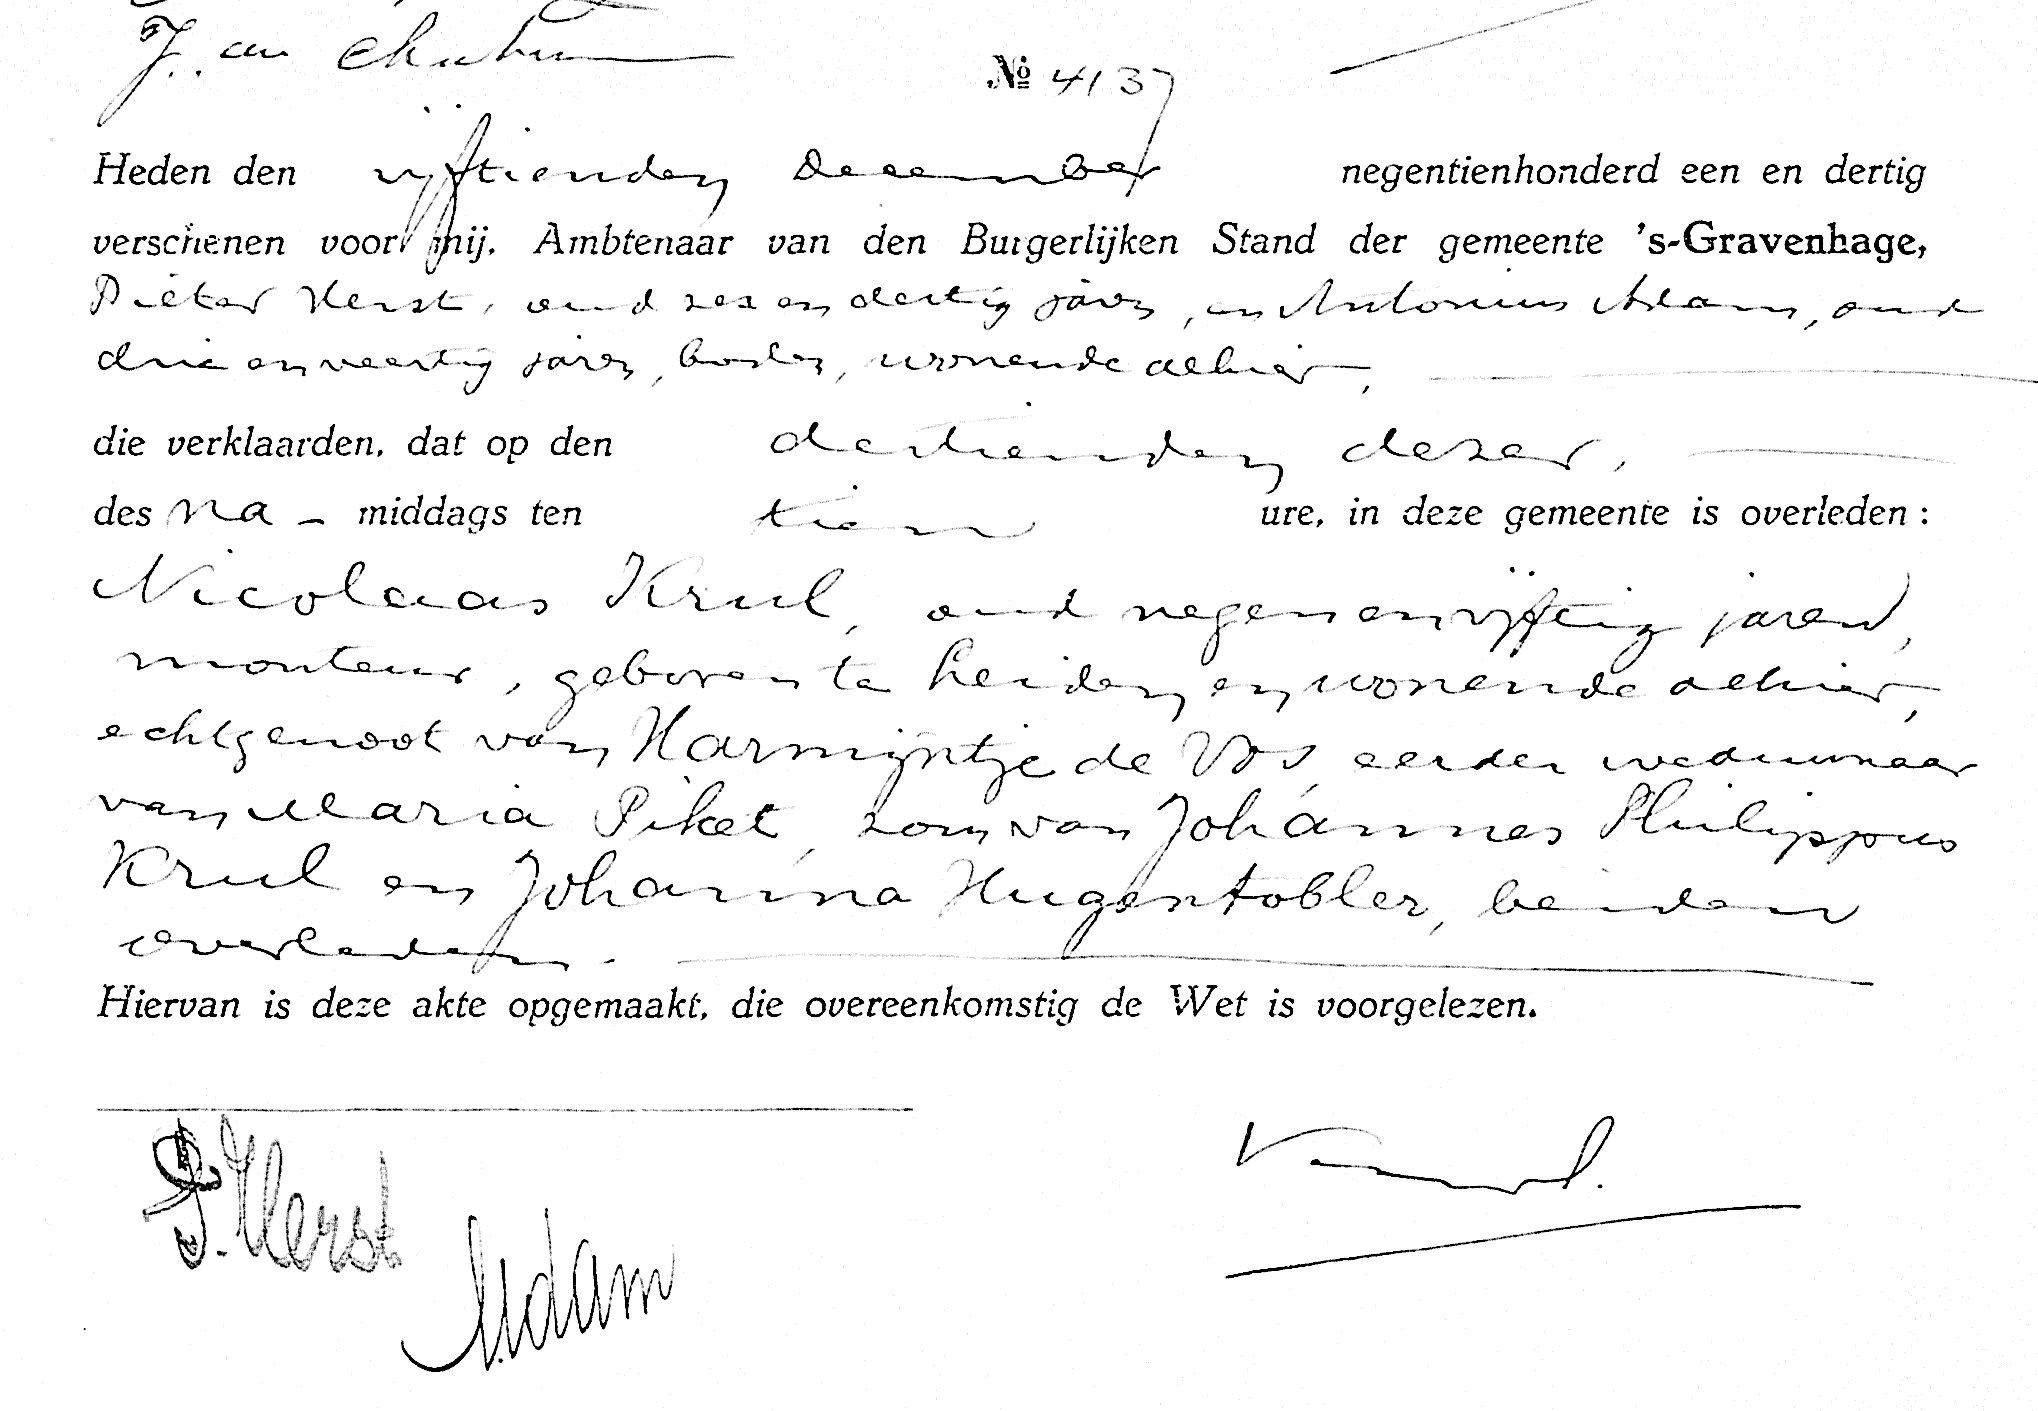 № 4137
Heden den vijftienden December negentienhonderd een en dertig
verschenen voor mij, Ambtenaar van den Burgerlijken Stand der gemeente 's-Gravenhage,
Pieter Herst, oud zes en dertig jaren, en Antonius Adam, oud
drie en veertig jaren, boden, wonende alhier,
die verklaarden, dat op den dertienden dezer,
des na - middags ten tien ure, in deze gemeente is overleden:
Nicolaas Krul, oud negenenvijftig jaren,
monteur, geboren te Leiden en wonende alhier,
echtgenoot van Harmijntje de Vos, eerder weduwnaar
van Maria Piket, zoon van Johannes Philippus
Krul en Johanna Hugentobler, beiden
overleden.
Hiervan is deze akte opgemaakt, die overeenkomstig de Wet is voorgelezen.
P. Herst
A. Adam